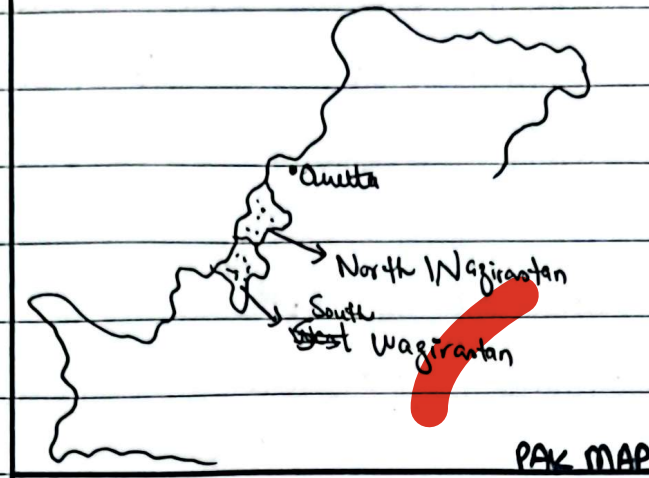 Quetta
North Wazirastan
South
West Wazirastan
PAK MAP